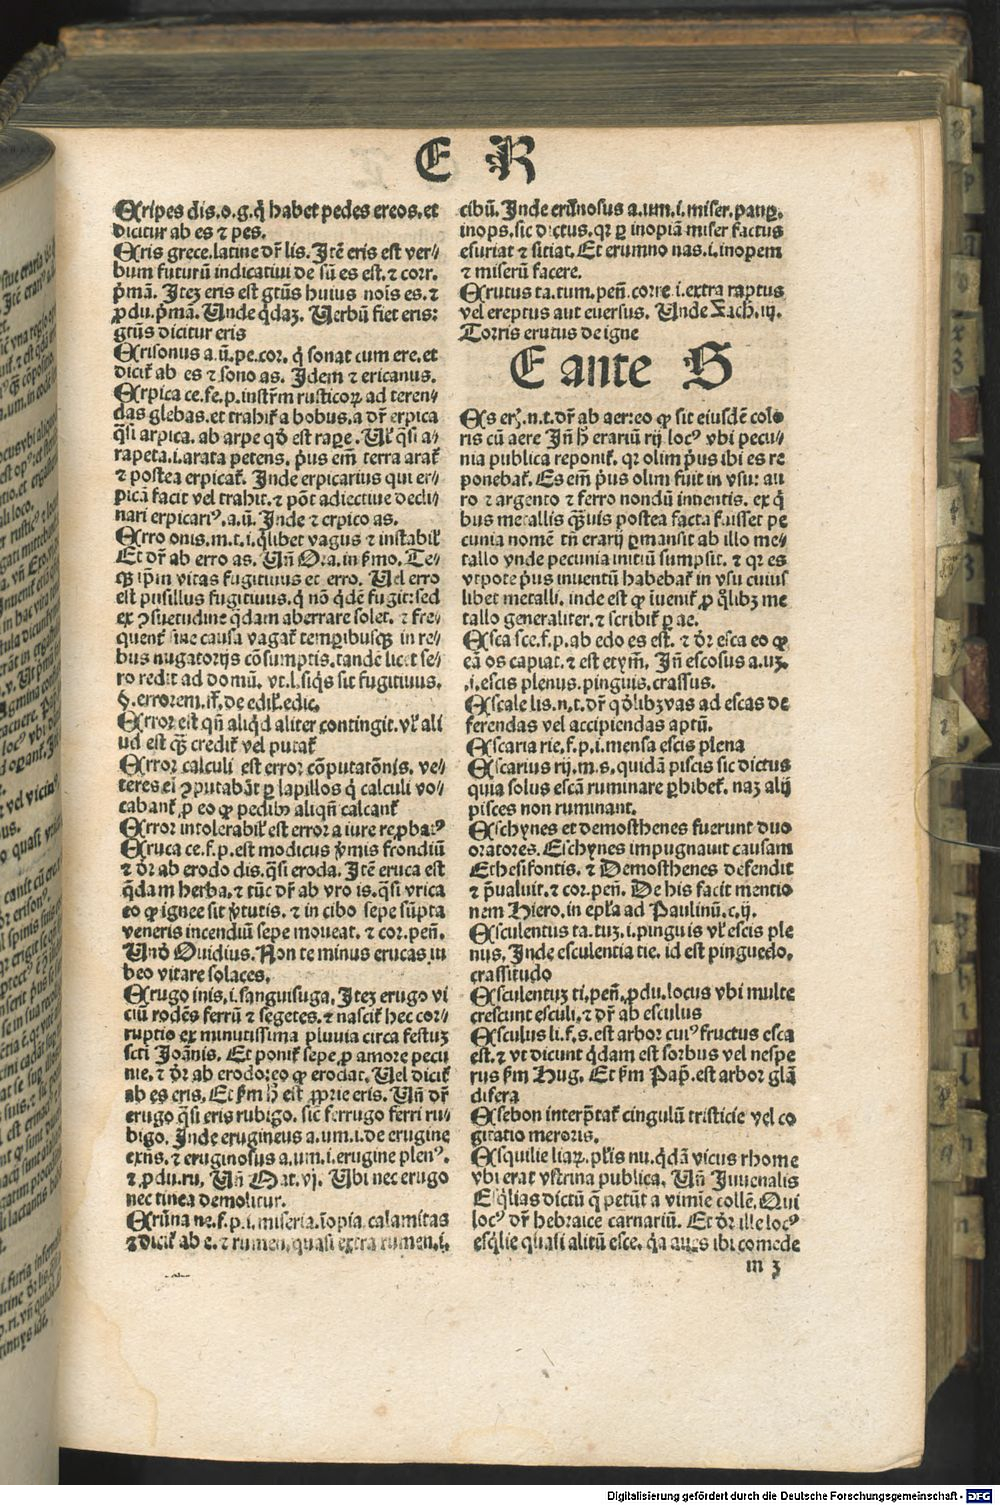 E R
Eripes dis.o.g.q̄ habet pedes ereos.et
dicitur ab es ⁊ pes.
Eris grece.latine dr̄ lis. Itē eris est ver⸗
bum futurū indicatiui de sū es est.⁊ corr.
p̄mā. Itez eris est gtūs huius nois es.⁊
ꝓdu.p̄mā. Unde q̇daz. Uerbū fiet eris:
gtūs dicitur eris
Erisonus a.ū.pe.cor.q̇ sonat cum ere.et
dicit̄ ab es ⁊ sono as. Idem ⁊ ericanus.
Erpica ce.fe.p.instr̄m rusticoꝝ ad teren⸗
das glebas.et trahit̄ a bobus.a dr̄ erpica
q̄si arpica.ab arpe qd̄ est rape. Ul̄ q̄si a⸗
rapeta.i.arata petens. p̄us em̄ terra arat̄
⁊ postea erpicat̄. Inde erpicarius qui er⸗
picā facit vel trahit.⁊ pōt adiectiue decli⸗
nari erpicariꝰ.a.ū. Inde ⁊ erpico as.
Erro onis.m.t.i.q̇libet vagus ⁊ instabil̄
Et dr̄ ab erro as. Un̄ Ora.in s̄mo. Te⸗
qꝫ ip̄m vitas fugitiuus et erro. Uel erro
est pusillus fugitiuus.q̇ nō q̇dē fugit:sed
ex ꝯsuetudine q̇dam aberrare solet.⁊ fre⸗
quent̄ sine causa vagat̄ temꝑibusqꝫ in re⸗
bus nugatorijs cōsumptis.tandē licet se⸗
ro redit ad domū. vt.l.siq̇s sit fugitiuus.
§.errorem.ff.de edil̄.edic.
Error est qn̄ aliq̇d aliter contingit.vl̄ ali
ud est qꝫ̄ credit̄ vel putat̄
Error calculi est error cōputatōnis. ve⸗
teres eī ꝯputabāt ꝑ lapillos q̇ calculi vo⸗
cabant̄ ꝓ eo ꝙ pedibꝫ aliqn̄ calcant̄
Error intolerabil̄ est error a iure reꝓbatꝰ
Eruca ce.f.p.est modicus v̄mis frondiū
⁊ dr̄ ab erodo dis.q̄si eroda. Itē eruca est
q̄dam herba.⁊ tūc dr̄ ab vro is.q̄si vrica
eo ꝙ ignee sit v̄tutis.⁊ in cibo sepe sūpta
veneris incendiū sepe moueat.⁊ cor.pen̄.
Und̄ Ouidius. Non te minus erucas iu
beo vitare solaces.
Erugo inis.i.sanguisuga. Itez erugo vi
ciū rodēs ferrū ⁊ segetes.⁊ nascit̄ hec cor⸗
ruptio ex minutissima pluuia circa festuꝫ
scti Joānis. Et ponit̄ sepe ꝓ amore pecu
nie.⁊ dr̄ ab erodo:eo ꝙ erodat. Uel dicit̄
ab es eris. Et s̄m h̄ est ꝓprie eris. Un̄ dr̄
erugo q̄si eris rubigo. sic ferrugo ferri ru⸗
bigo. Inde erugineus a.um.i.de erugine
exn̄s.⁊ eruginosus a.um.i.erugine plenꝰ.
⁊ ꝓdu.ru. Un̄ Mat.vj. Ubi nec erugo
nec tinea demolitur.
Erūna ne.f.p.i.miseria.īopia calamitas
⁊ dicit̄ ab e.⁊ rumen.quasi extra rumen.i.
cibū. Inde erūnosus a.um.i.miser.pauꝑ.
inops.sic dictus.qr ꝑ inopiā miser factus
esuriat ⁊ sitiat. Et erumno nas.i.inopem
⁊ miserū facere.
Erutus ta.tum.pen̄.corre.i.extra raptus
vel ereptus aut euersus. Unde Zach.iij.
Torris erutus de igne
E ante S
Es erꝫ.n.t.dr̄ ab aer:eo ꝙ sit eiusdē colo
ris cū aere In̄ h̄ erariū rij locꝰ vbi pecu⸗
nia publica reponit̄. qr olim p̄us ibi es re
ponebat̄. Es em̄ p̄us olim fuit in vsu: au
ro ⁊ argento ⁊ ferro nondū inuentis. ex q̇
bus metallis qꝫ̄uis postea facta fuisset pe
cunia nomē tn̄ erarij ꝑmansit ab illo me⸗
tallo vnde pecunia initiū sumpsit.⁊ qr es
vtpote p̄us inuentū habebat̄ in vsu cuius
libet metalli. inde est ꝙ īuenit̄ ꝓ q̊libꝫ me
tallo generaliter.⁊ scribit̄ ꝑ ae.
Esca sce.f.p.ab edo es est.⁊ dr̄ esca eo ꝙ
eā os capiat.⁊ est etym̄. In̄ escosus a.uꝫ.
.i.escis plenus.pinguis.crassus.
Escale lis.n.t.dr̄ qd̄libꝫ vas ad escas de
ferendas vel accipiendas aptū.
Escaria rie.f.p.i.mensa escis plena
Escarius rij.m.s.quidā piscis sic dictus
quia solus escā ruminare ꝑhibet̄. naꝫ alij
pisces non ruminant.
Eschynes et demosthenes fuerunt duo
oratores. Eschynes impugnauit causam
Ethesifontis.⁊ Demosthenes defendit
⁊ p̄ualuit.⁊ cor.pen̄. De his facit mentio
nem Hiero.in ep̄la ad Paulinū.c.ij.
Esculentus ta.tuꝫ.i.pinguis vl̄ escis ple
nus. Inde esculentia tie. id est pinguedo.
crassitudo
Esculentuꝫ ti.pen̄.ꝓdu.locus vbi multe
crescunt esculi.⁊ dr̄ ab esculus
Esculus li.f.s.est arbor cuiꝰ fructus esca
est.⁊ vt dicunt q̇dam est sorbus vel nespe
rus s̄m Hug. Et s̄m Pap̄.est arbor glā
difera
Esebon interp̄tat̄ cingulū tristicie vel co
gitatio meroris.
Esquilie liaꝝ.pl̄is nu.q̇dā vicus rhome
vbi erat vstrina publica. Un̄ Juuenalis
Esq̇lias dictū q̄ petūt a vimīe collē. Qui
locꝰ dr̄ hebraice carnariū. Et dr̄ ille locꝰ
esq̇lie quasi alitū esce. q̇a aues ibi comede
m 3
Digitalisierung gefördert durch die Deutsche Forschungsgemeinschaft - DFG